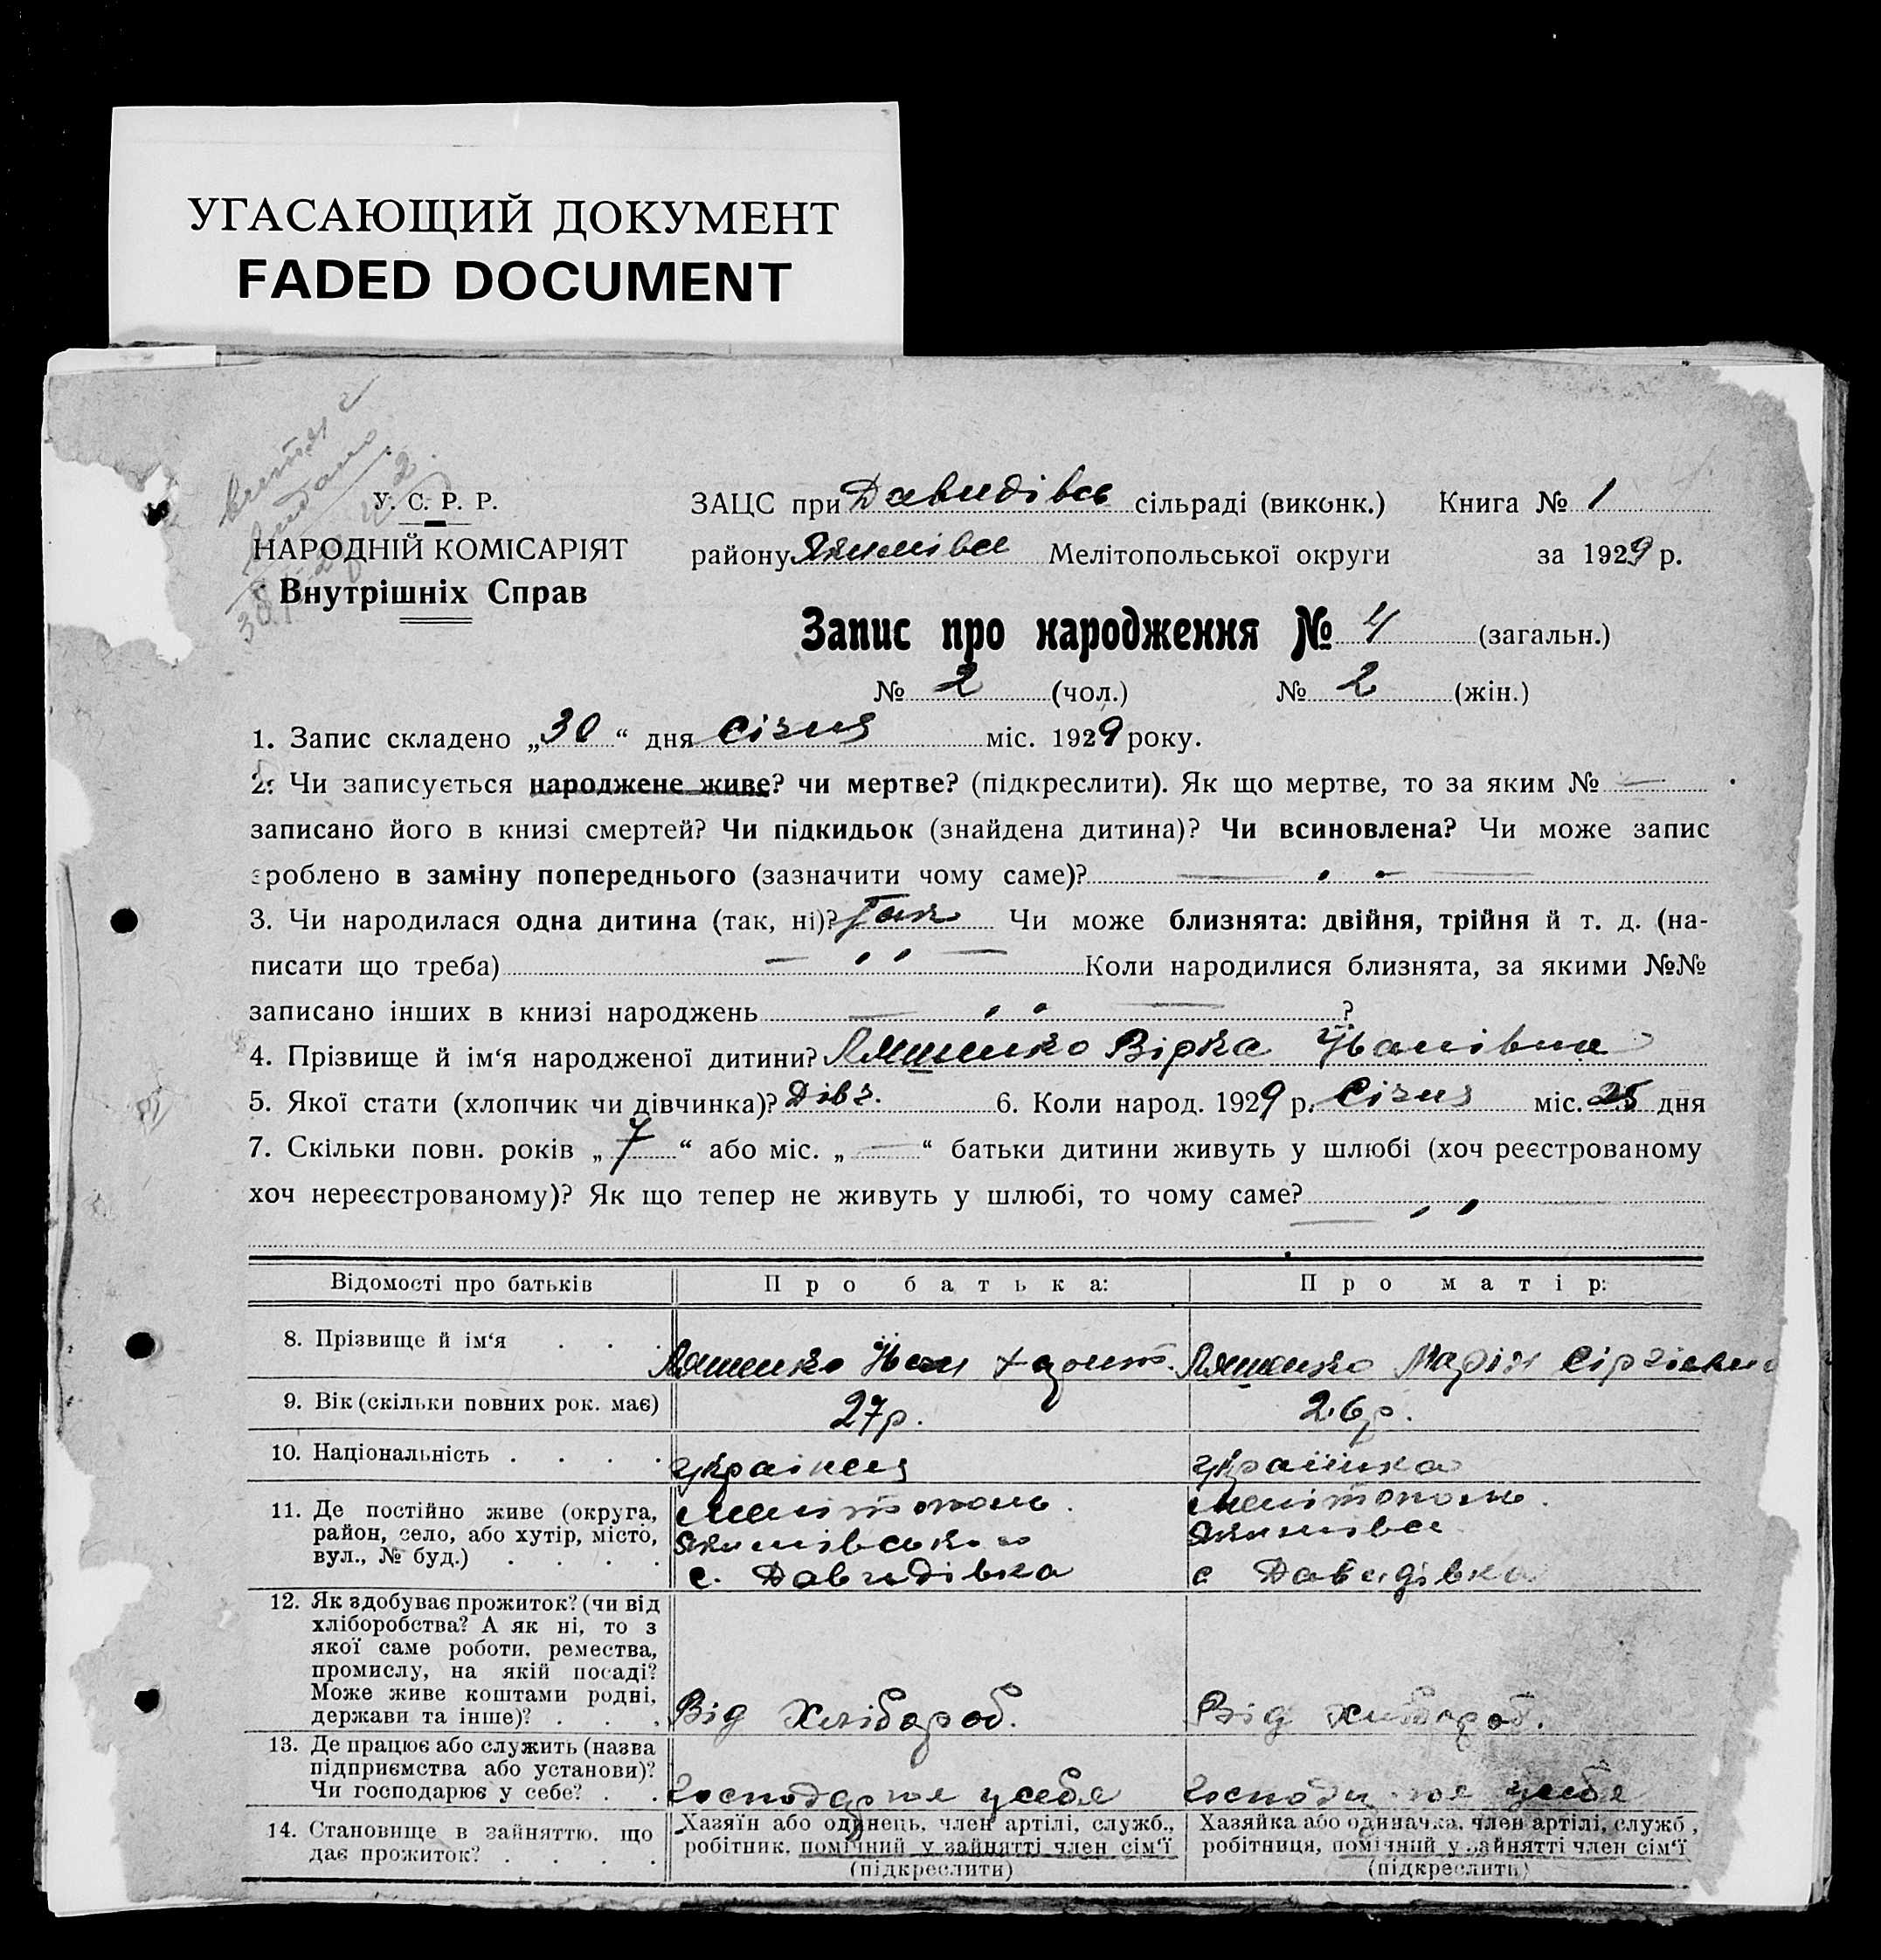 УГАСАЮЩИЙ ДОКУМЕНТ
FADED DOCUMENT
У. С. Р. Р.
НАРОДНІЙ КОМІСАРІЯТ
Внутрішніх Справ
ЗАЦС при Давидівсь сільраді (виконк.) Книга № 1
району Якимівсь Мелітопольської округи за 1929 р.
Запис про народження № 4 (загальн.)
№ 2 (чол.) № 2 (жін.)
1. Запис складено „30“ дня Січня міс. 1929 року.
2. Чи записується народжене живе? чи мертве? (підкреслити). Як що мертве, то за яким № —
записано його в книзі смертей? Чи підкидьок (знайдена дитина)? Чи всиновлена? Чи може запис
зроблено в заміну попереднього (зазначити чому саме)?
3. Чи народилася одна дитина (так, ні)? Так Чи може близнята: двійня, трійня й т. д. (на-
писати що треба) Коли народилися близнята, за якими №№
записано інших в книзі народжень ?
4. Прізвище й ім‘я народженої дитини? Ляшенко Вірка Іванівна
5. Якої стати (хлопчик чи дівчинка)? Дівч. 6. Коли народ. 1929 р. Січня міс. 25 дня
7. Скільки повн. років „7“ або міс. „—“ батьки дитини живуть у шлюбі (хоч реєстрованому
хоч нереєстрованому)? Як що тепер не живуть у шлюбі, то чому саме?
Відомості про батьків Про батька: Про матір:
8. Прізвище й ім‘я . . . Ляшенко Іван Ляшенко Марія Сіргіевна
9. Вік (скільки повних рок. має) 27р. 26р.
10. Національність . . . . українець українка
11. Де постійно живе (округа, район, село, або хутір, місто, вул., № буд.) . . . .
Мелітополь. Мелітополь.
Якимівсько Якимівсь
с. Давидівка с Давидівка
12. Як здобуває прожиток? (чи від
хліборобства? А як ні, то з
якої саме роботи, ремества,
промислу, на якій посаді?
Може живе коштами родні,
держави та інше)? . . . Від хлібороб. Від хлібороб.
13. Де працює або служить (назва
підприємства або установи)?
Чи господарює у себе? . . Господарює у себе Господарює у себе
14. Становище в зайняттю, що
дає прожиток? . . . .
Хазяїн або одинець, член артілі, служб., Хазяйка або одиначка, член артілі, служб,
робітник, помічний у зайнятті член сім‘ї робітниця, помічний у зайнятті член сім‘ї
(підкреслити) (підкреслити)